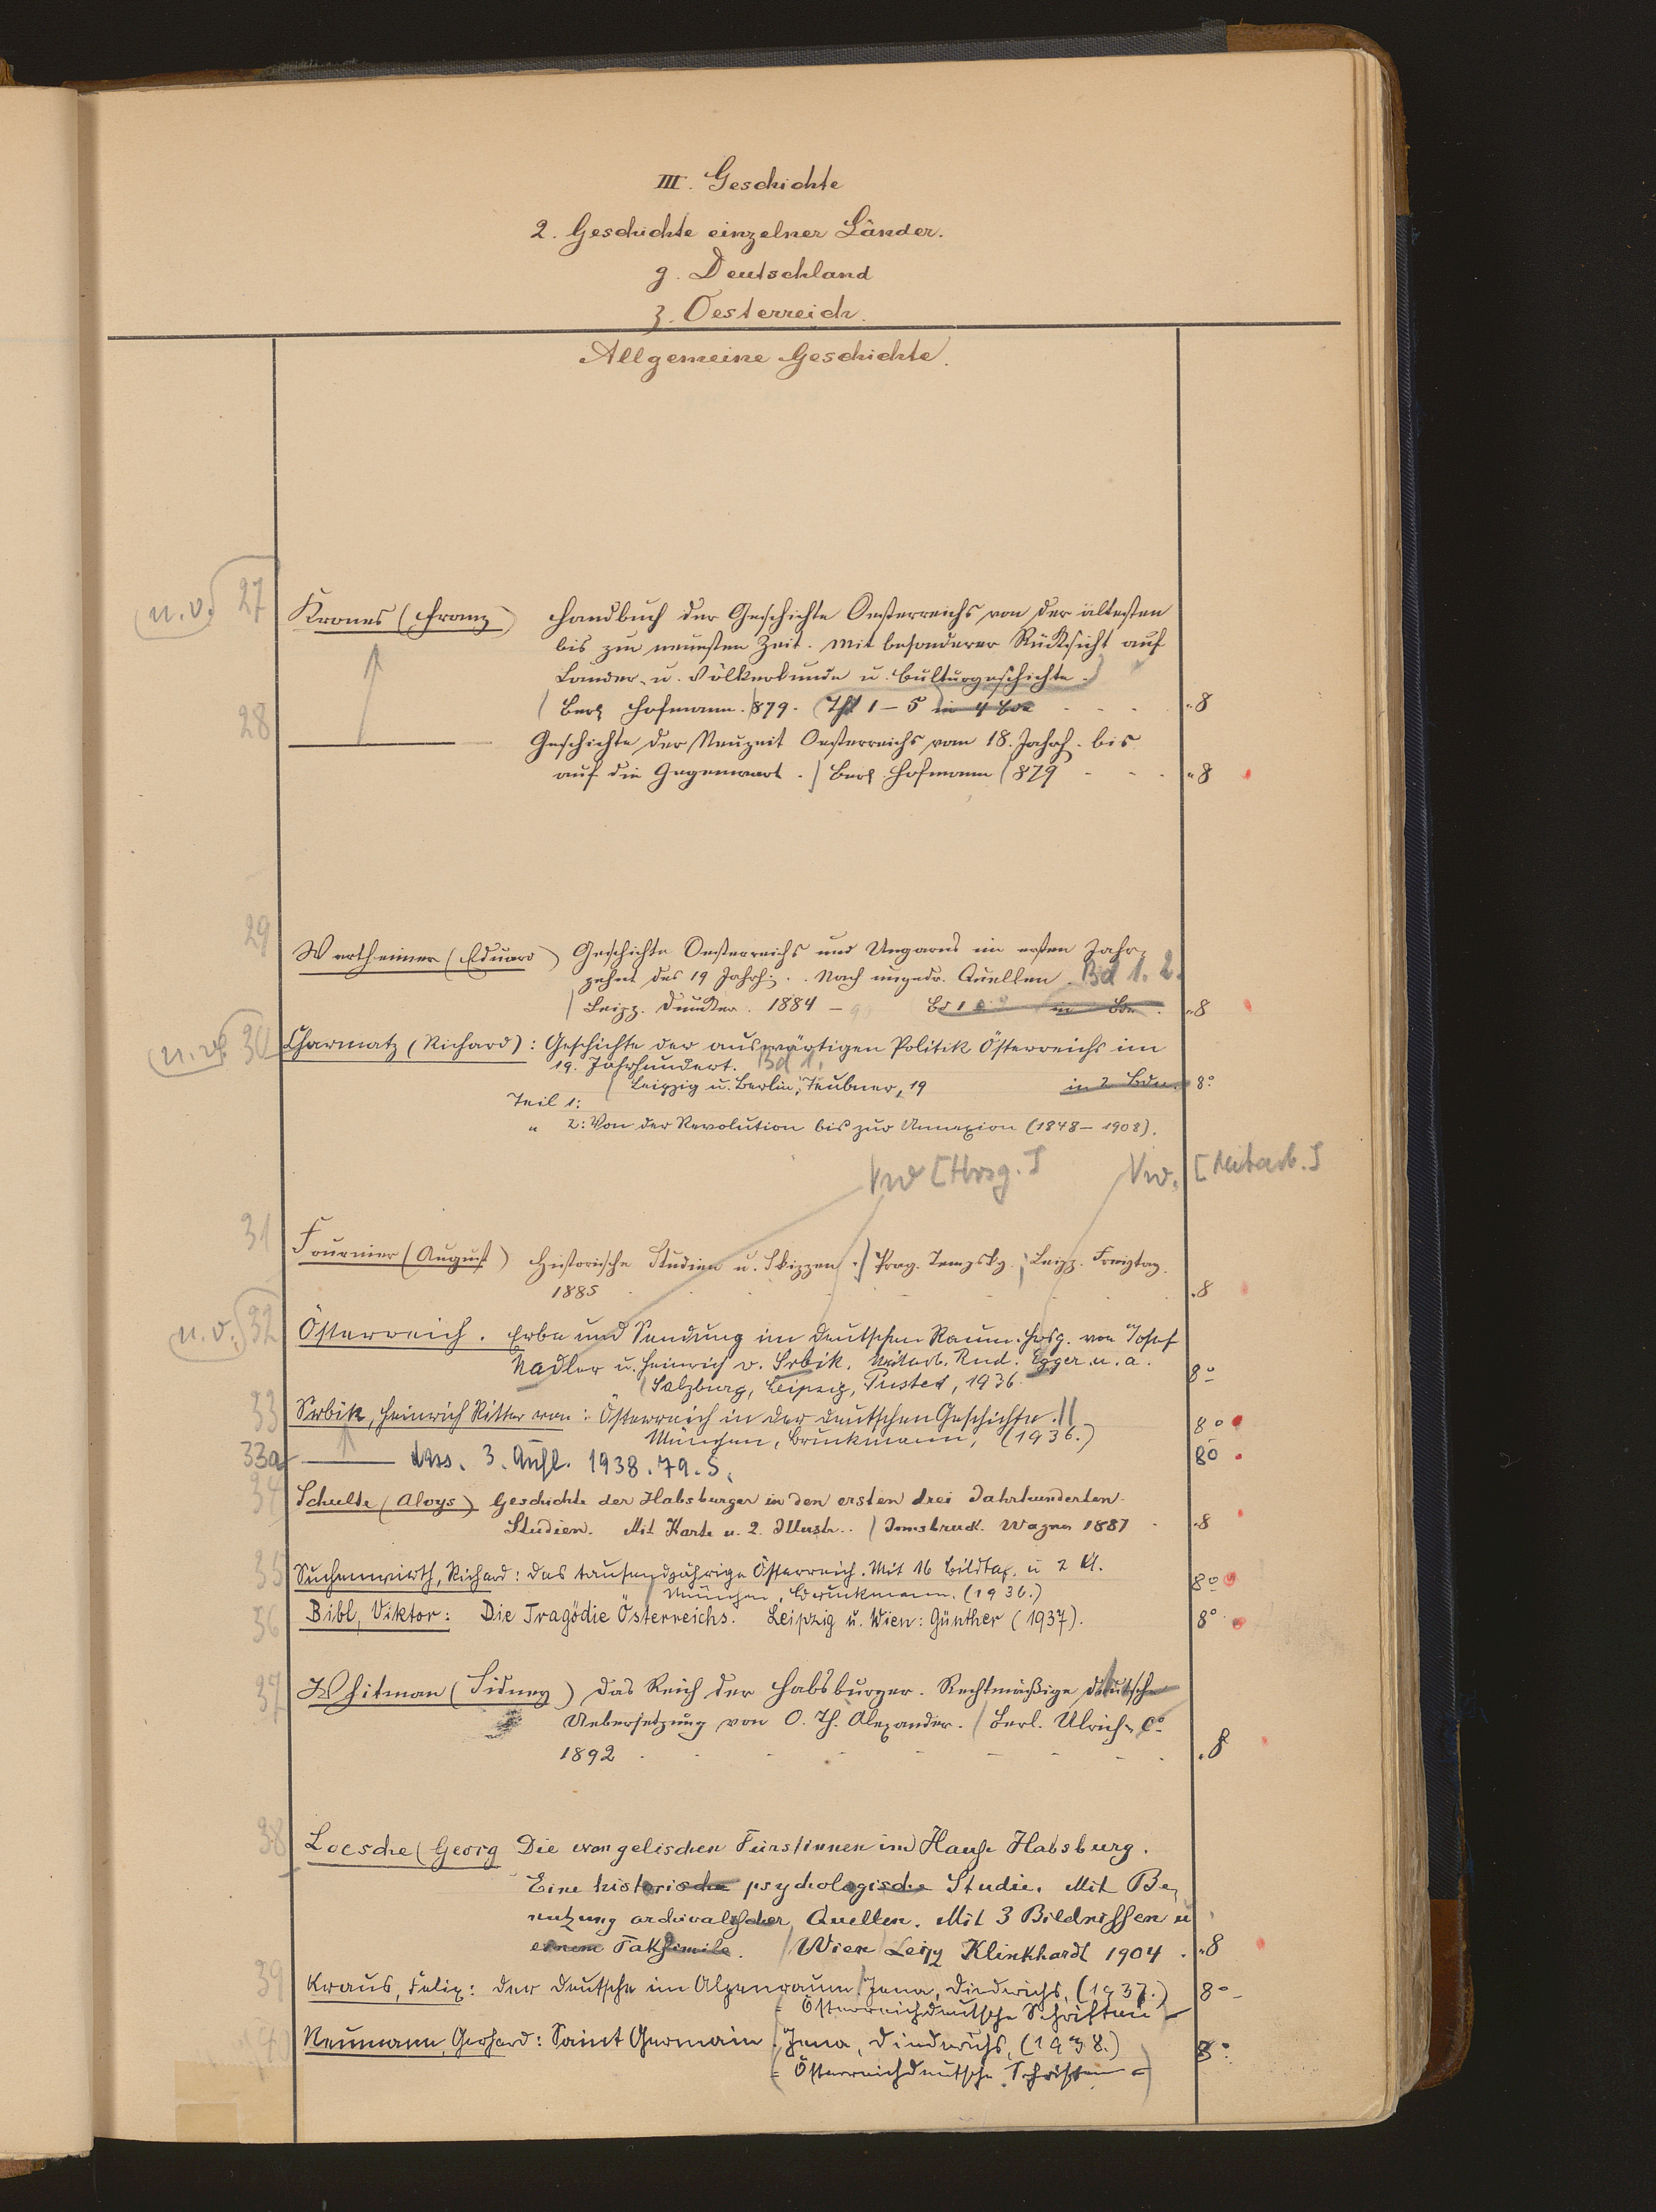 III. Geschichte
2. Geschichte einzelner Länder.
g. Deutschland
z. Oesterreich.
Allgemeine Geschichte.
u. v. 27 Krones (Franz) Handbuch der Geschichte Oesterreichs von der ältesten
bis zur neuesten Zeit. Mit besonderer Rücksicht auf
Länder- u. Völkerkunde u. Culturgeschichte.
Berl. Hofmann. 879. Thl 1-5 in 4 Bde 8
28 Geschichte der Neuzeit Oesterreichs vom 18. Jahrh. bis
auf die Gegenwart. Berl. Hofmann 879 8
29 Wertheimer (Eduard) Geschichte Oesterreichs und Ungarns im ersten Jahr-
zehnt des 19 Jahrh. Nach ungedr. Quellen. Bd 1. 2.
Leipz. Duncker. 1884 - Bd 1 in Bdn. 8
u. v. 30 Charmatz (Richard): Geschichte der auswärtigen Politik Österreichs im
19. Jahrhundert. Bd 1.
Leipzig u. Berlin, Teubner, 19 in 2 Bdn. 8°
Teil 1:
" 2: Von der Revolution bis zur Annexion (1848-1908).
Vw [Hrsg.] Vw. [Mitarb.]
31 Fournier (August) Historische Studien u. Skizzen. Prag. Tempsky. Leipz. Freytag.
1885 8
u. v. 32 Österreich. Erbe und Sendung im deutschen Raum. Hrsg. von Josef
Nadler u. Heinrich v. Srbik. Mitarb. Rud. Egger u. a.
Salzburg, Leipzig, Pustet, 1936. 8°
33 Srbik, Heinrich Ritter von: Österreich in der deutschen Geschichte.
München, Bruckmann, (1936.) 8°
33a dass. 3. Aufl. 1938. 79. S. 8°
34 Schulte (Aloys) Geschichte der Habsburger in den ersten drei Jahrhunderten.
Studien. Mit Karte u. 2. Illustr.. Innsbruck. Wagner 1887 8
35 Suchenwirth, Richard: Das tausendjährige Österreich. Mit 16 Bildtaf. u 2 K.
München, Bruckmann. (1936.) 8°
36 Bibl, Viktor: Die Tragödie Österreichs. Leipzig u. Wien: Günther (1937). 8°
37 Whitman (Sidney) Das Reich der Habsburger. Rechtmäßige deutsche
Uebersetzung von O. Th. Alexander. Berl. Ulrich & C°
1892 8
38 Loesche (Georg Die evangelischen Fürstinnen im Hause Habsburg.
Eine historische psychologische Studie. Mit Be-
nutzung archivalischer Quellen. Mit 3 Bildnissen u
einem Faksimile. Wien Leipz Klinkhardt 1904. 8
39 Kraus, Felix: Der Deutsche im Alpenraum Jena, Diederichs, (1937.) 8°
= Österreichdeutsche Schriften
Neumann, Gerhard: Saint Germain. Jena, Diederichs, (1938.) 8°
= Österreichdeutsche Schriften =